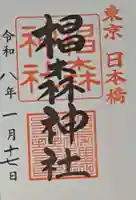 東京 日本橋
椙森神社
令和八年一月十七日
椙森
神社